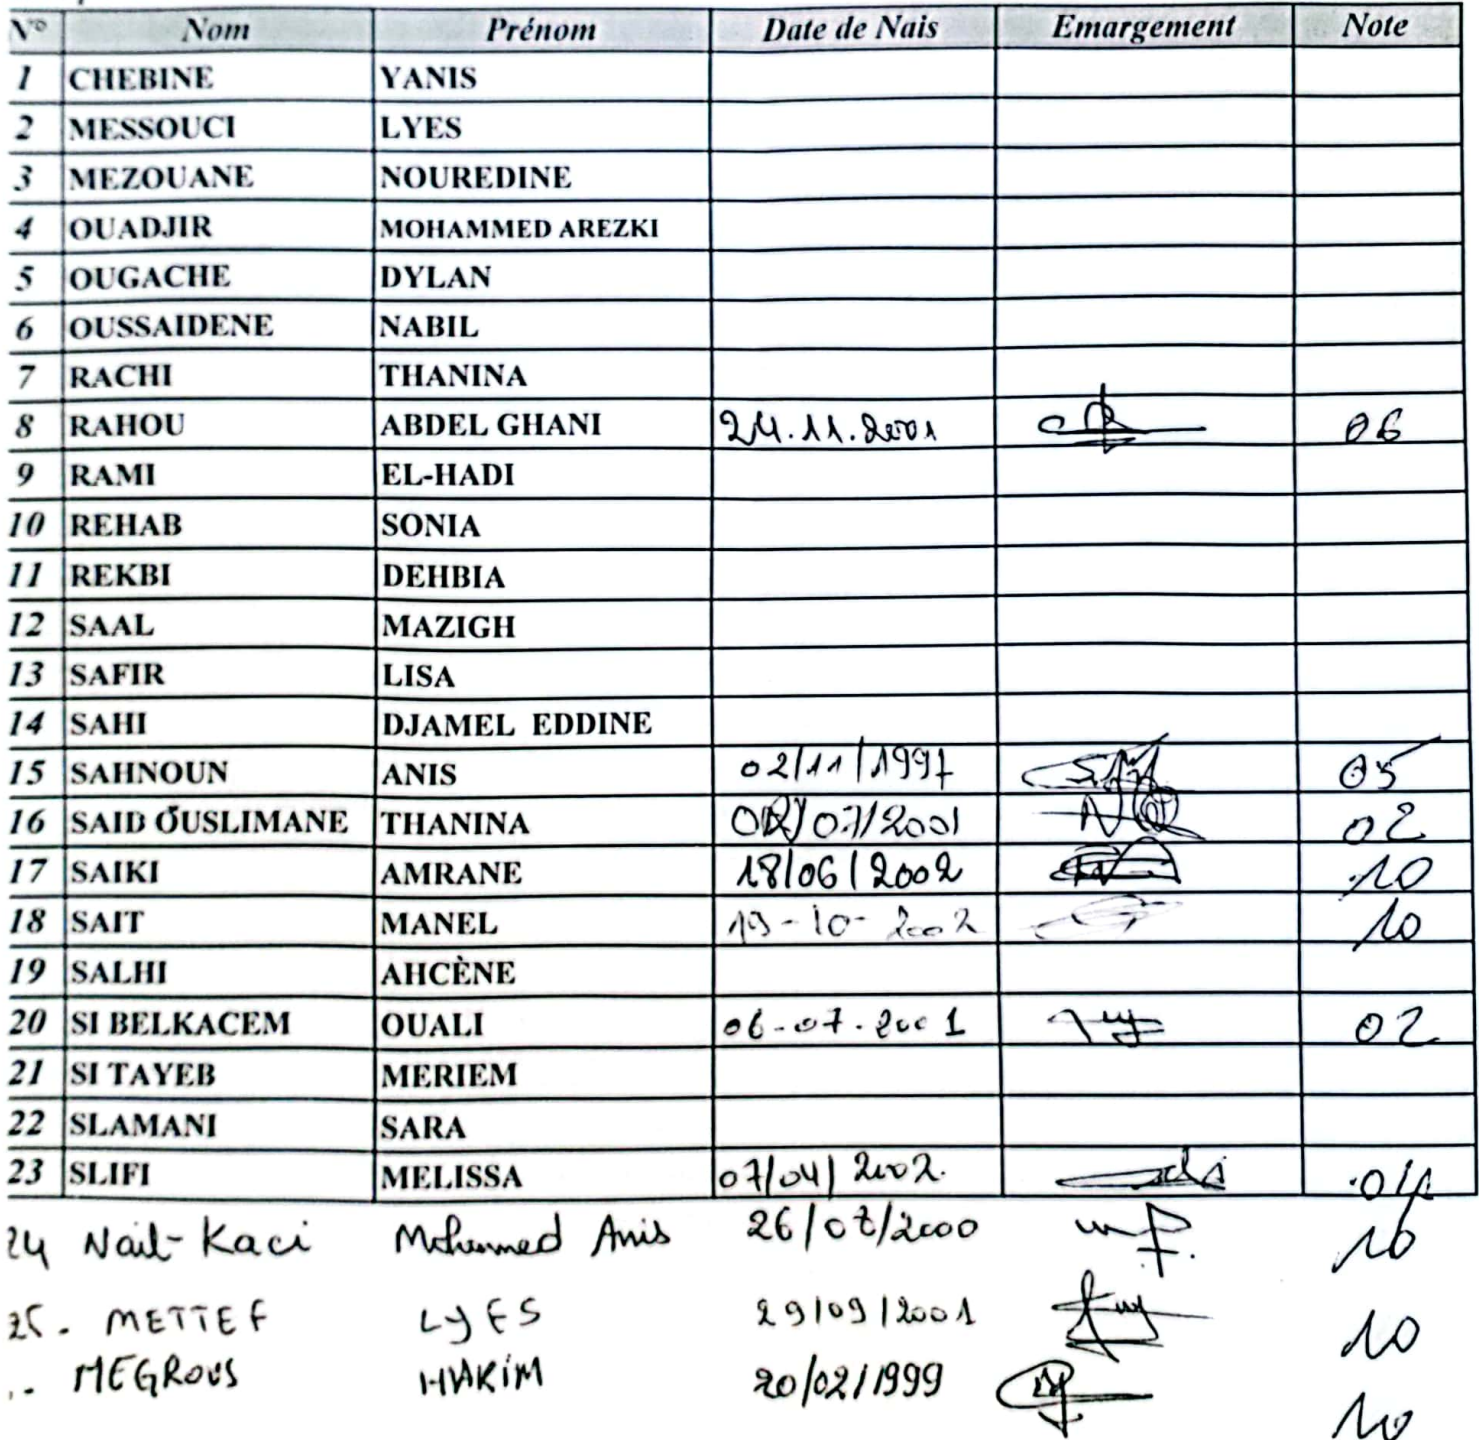 N° Nom Prénom Date de Nais Emargement Note
1 CHEBINE YANIS
2 MESSOUCI LYES
3 MEZOUANE NOUREDINE
4 OUADJIR MOHAMMED AREZKI
5 OUGACHE DYLAN
6 OUSSAIDENE NABIL
7 RACHI THANINA
8 RAHOU ABDEL GHANI 24.11.2001 06
9 RAMI EL-HADI
10 REHAB SONIA
11 REKBI DEHBIA
12 SAAL MAZIGH
13 SAFIR LISA
14 SAHI DJAMEL EDDINE
15 SAHNOUN ANIS 02/11/1997 05
16 SAID OUSLIMANE THANINA 02
17 SAIKI AMRANE 18/06/2002 10
18 SAIT MANEL 19-10-2002 10
19 SALHI AHCÈNE
20 SI BELKACEM OUALI 06-07-2001 02
21 SI TAYEB MERIEM
22 SLAMANI SARA
23 SLIFI MELISSA 07/04/2002.
24 Nait-Kaci Mohammed Anis 10
25. METTEF LYES 29/09/2001 10
MEGROUS HAKIM 20/02/1999 10